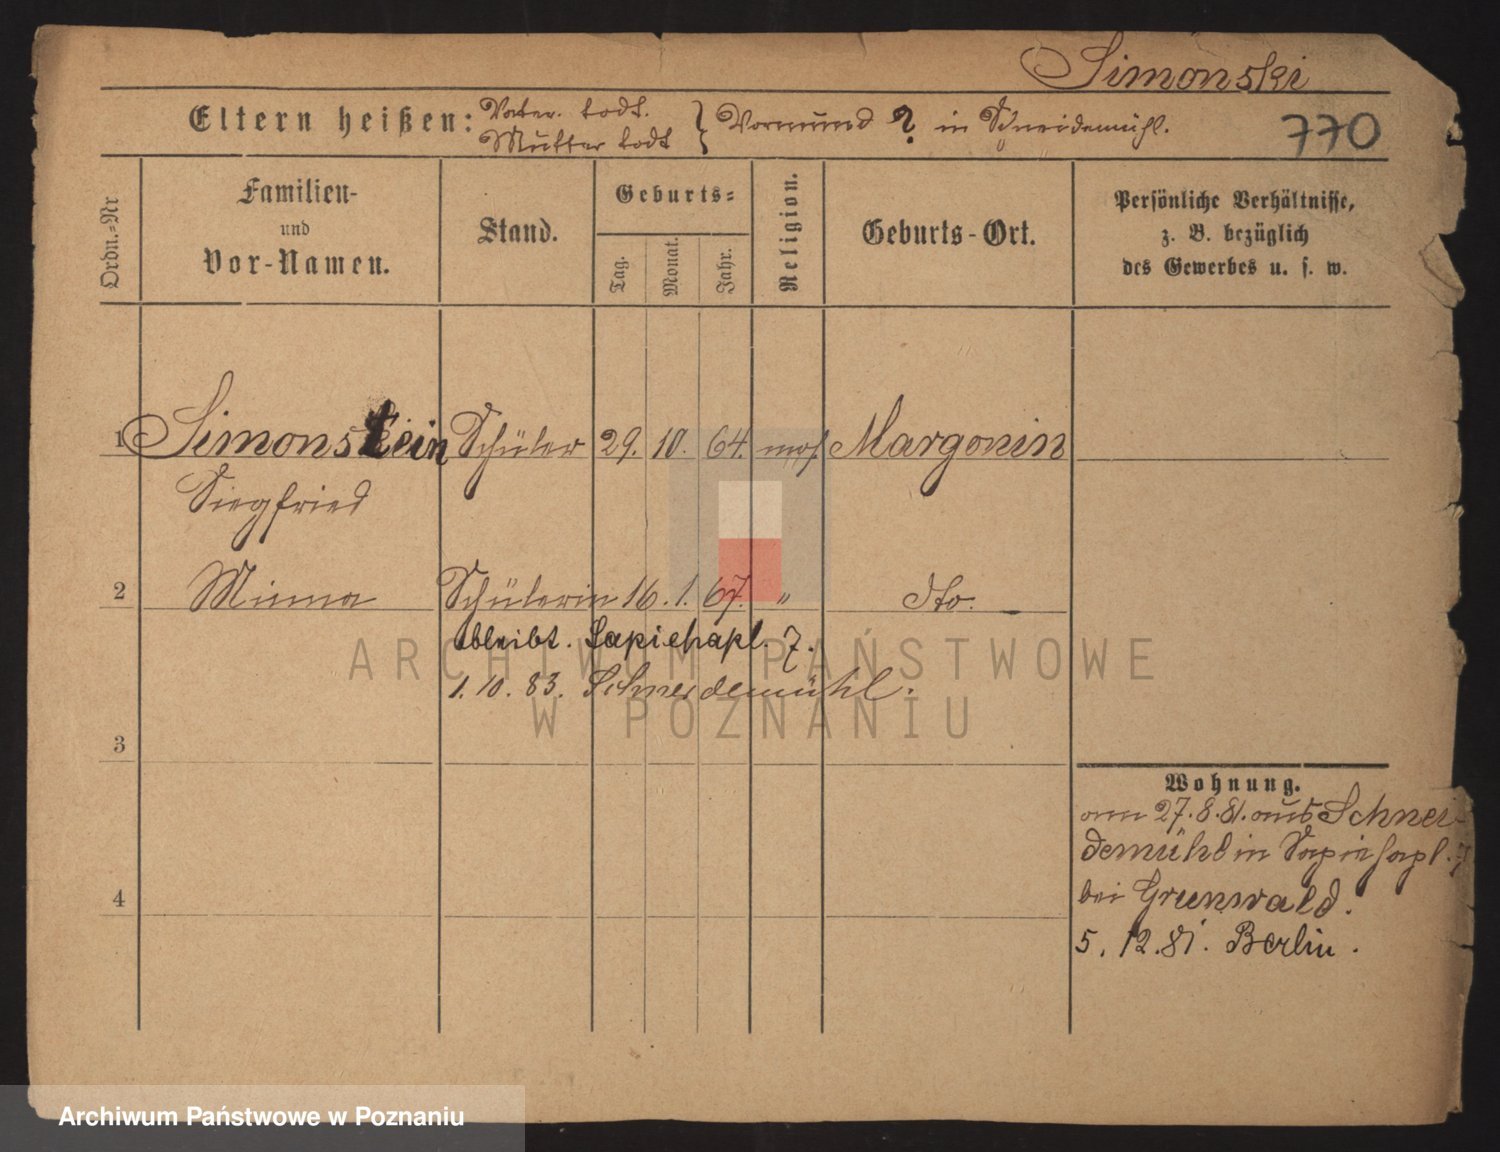 Simonski
Eltern heißen: Vater todt. } Vormund ? in Schneidemühl. 770
Mutter todt
Ordn.=Nr
Familien-
und
Vor-Namen.
Stand.
Geburts=
Tag. Monat. Jahr.
Religion.
Geburts-Ort.
Persönliche Verhältnisse,
z. B. bezüglich
des Gewerbes u. s. w.
1 Simonstein Schüler 29. 10. 64. mos. Margonin
Siegfried
2 Minna Schülerin 16. 1. 67. " dto.
bleibt. Sapiehapl. 7.
1. 10. 83. Schneidemühl.
3
Wohnung.
am 27.8.81. aus Schnei-
demühl in Sapiehapl. 7
bei Grunwald.
4
5. 12. 81. Berlin.
ARCHIWUM PAŃSTWOWE
W POZNANIU
Archiwum Państwowe w Poznaniu